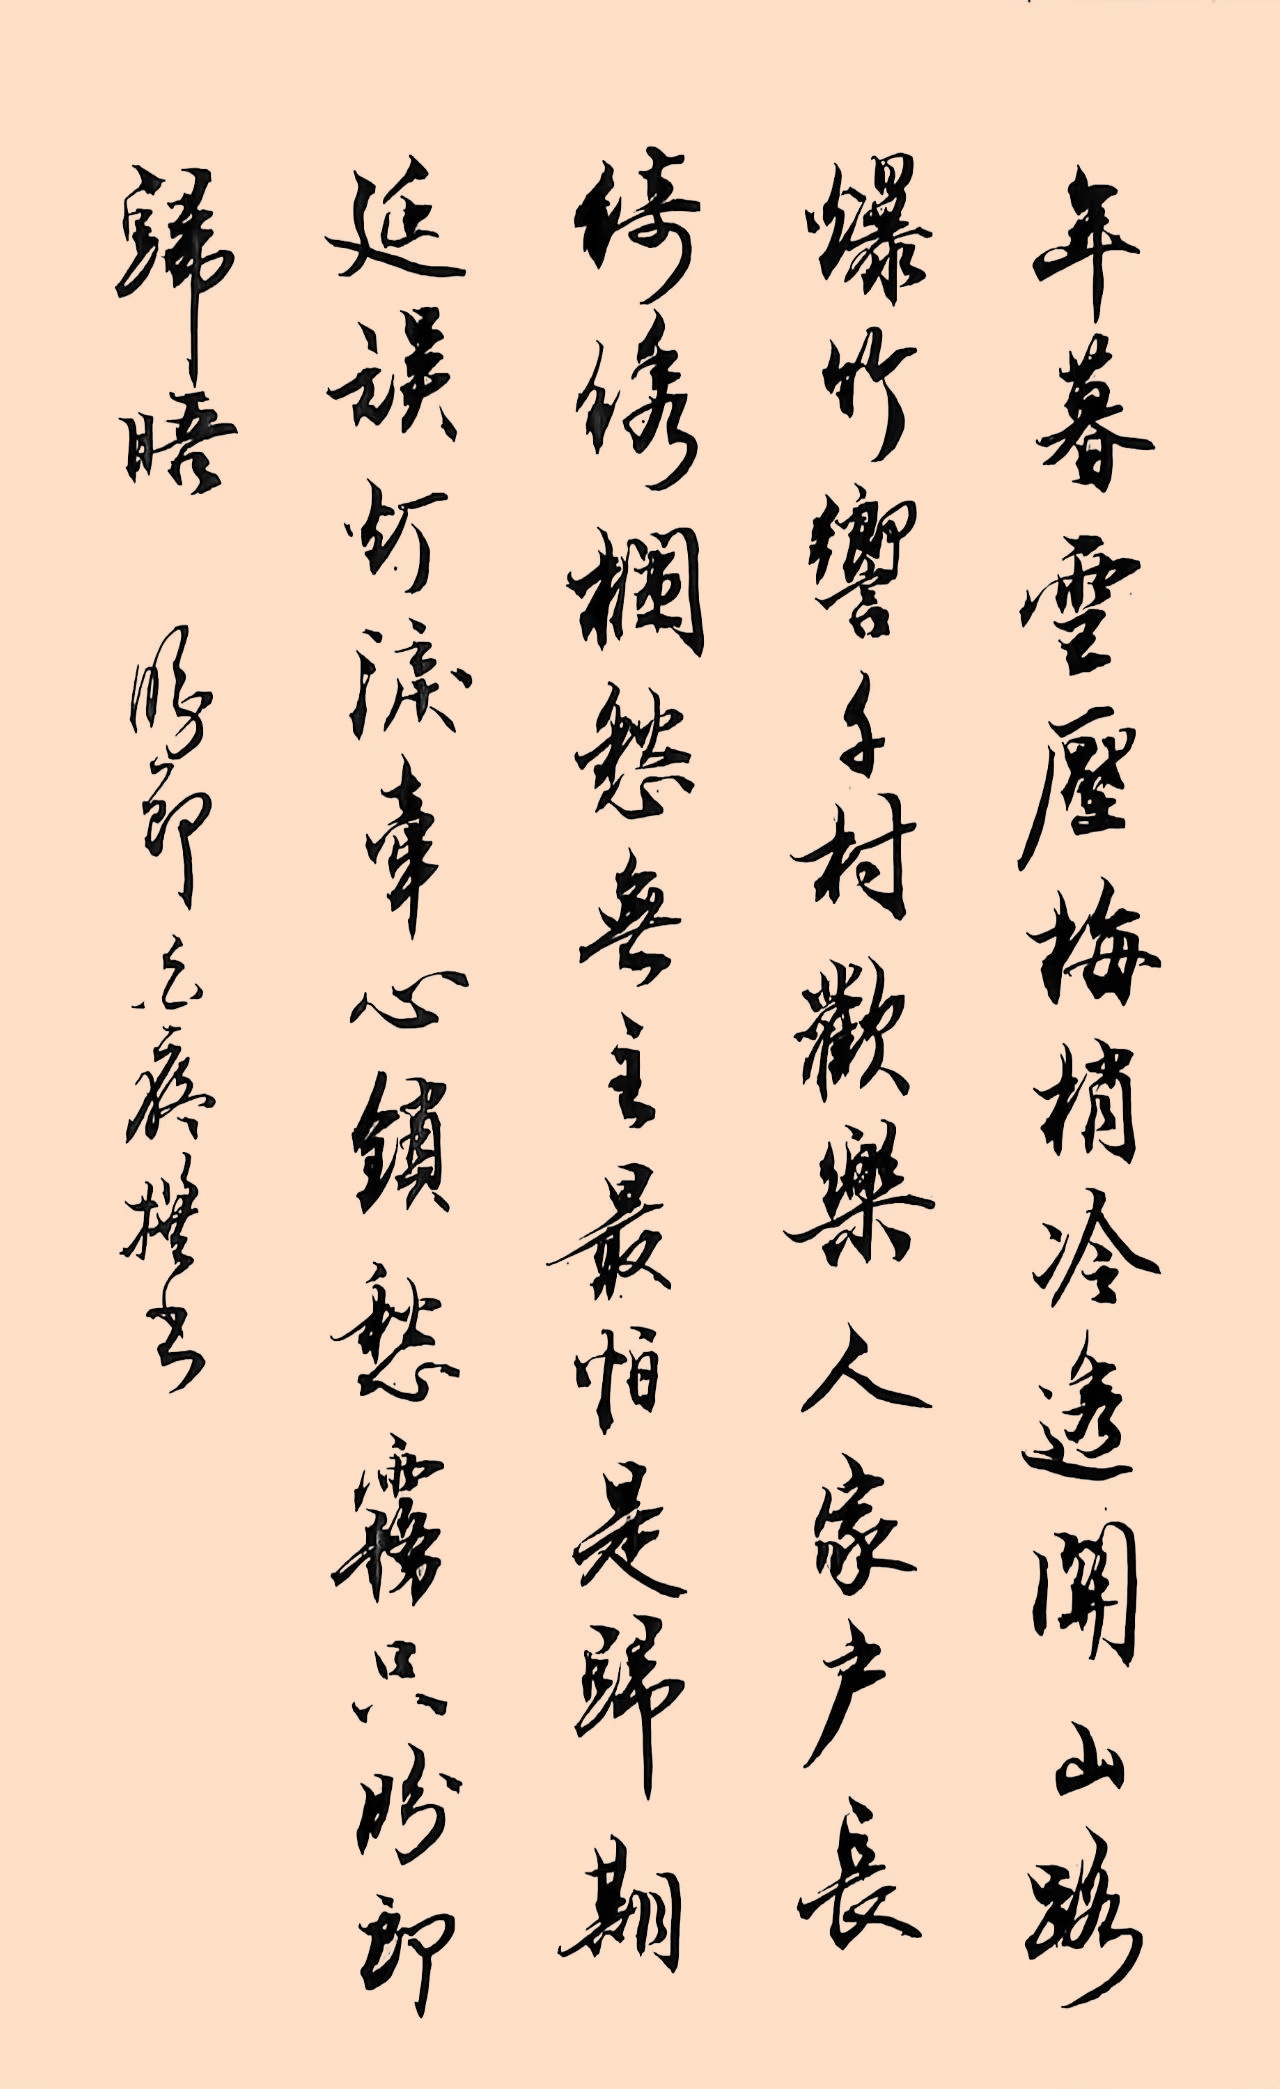 年暮雪壓梅梢冷透關山路
爆竹響千村歡樂人家戶長
綺綉欄愁無主最怕是歸期
延誤灯淚牽心鎖愁霧只盼郎
歸晤